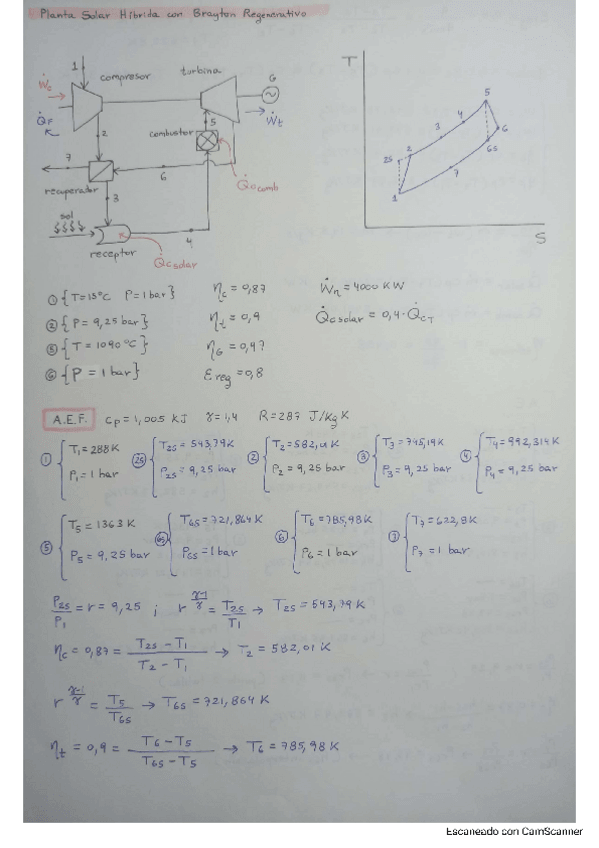 Planta Solar Híbrida con Brayton Regenerativo
1
compresor
turbina
G
Ẇc
Q̇F
Ẇt
2
5
combustor
7
6
Q̇ccomb
recuperador
3
sol
4
receptor
Q̇csolar
T
5
4
3
2
2s
6
6s
7
1
S
① {T=15°C P=1bar}
② {P=9,25 bar}
⑤ {T=1090°C}
⑥ {P=1bar}
ηc=0,87
ηt=0,9
ηG=0,97
Ereg=0,8
Ẇn=4000 KW
Q̇csolar=0,4·Q̇cT
A.E.F. cp=1,005 KJ γ=1,4 R=287 J/Kg K
① T1=288K P1=1 bar
②s T2s=543,79K P2s=9,25 bar
② T2=582,01K P2=9,25 bar
③ T3=745,19K P3=9,25 bar
④ T4=992,314K P4=9,25 bar
⑤ T5=1363K P5=9,25 bar
⑥s T6s=721,864K P6s=1bar
⑥ T6=785,98K P6=1bar
⑦ T7=622,8K P7=1 bar
P2s/P1 = r = 9,25 ; r^(γ-1/γ) = T2s/T1 → T2s=543,79K
ηc=0,87 = (T2s-T1)/(T2-T1) → T2=582,01K
r^(γ-1/γ) = T5/T6s → T6s=721,864 K
ηt=0,9 = (T6-T5)/(T6s-T5) → T6=785,98K
Escaneado con CamScanner